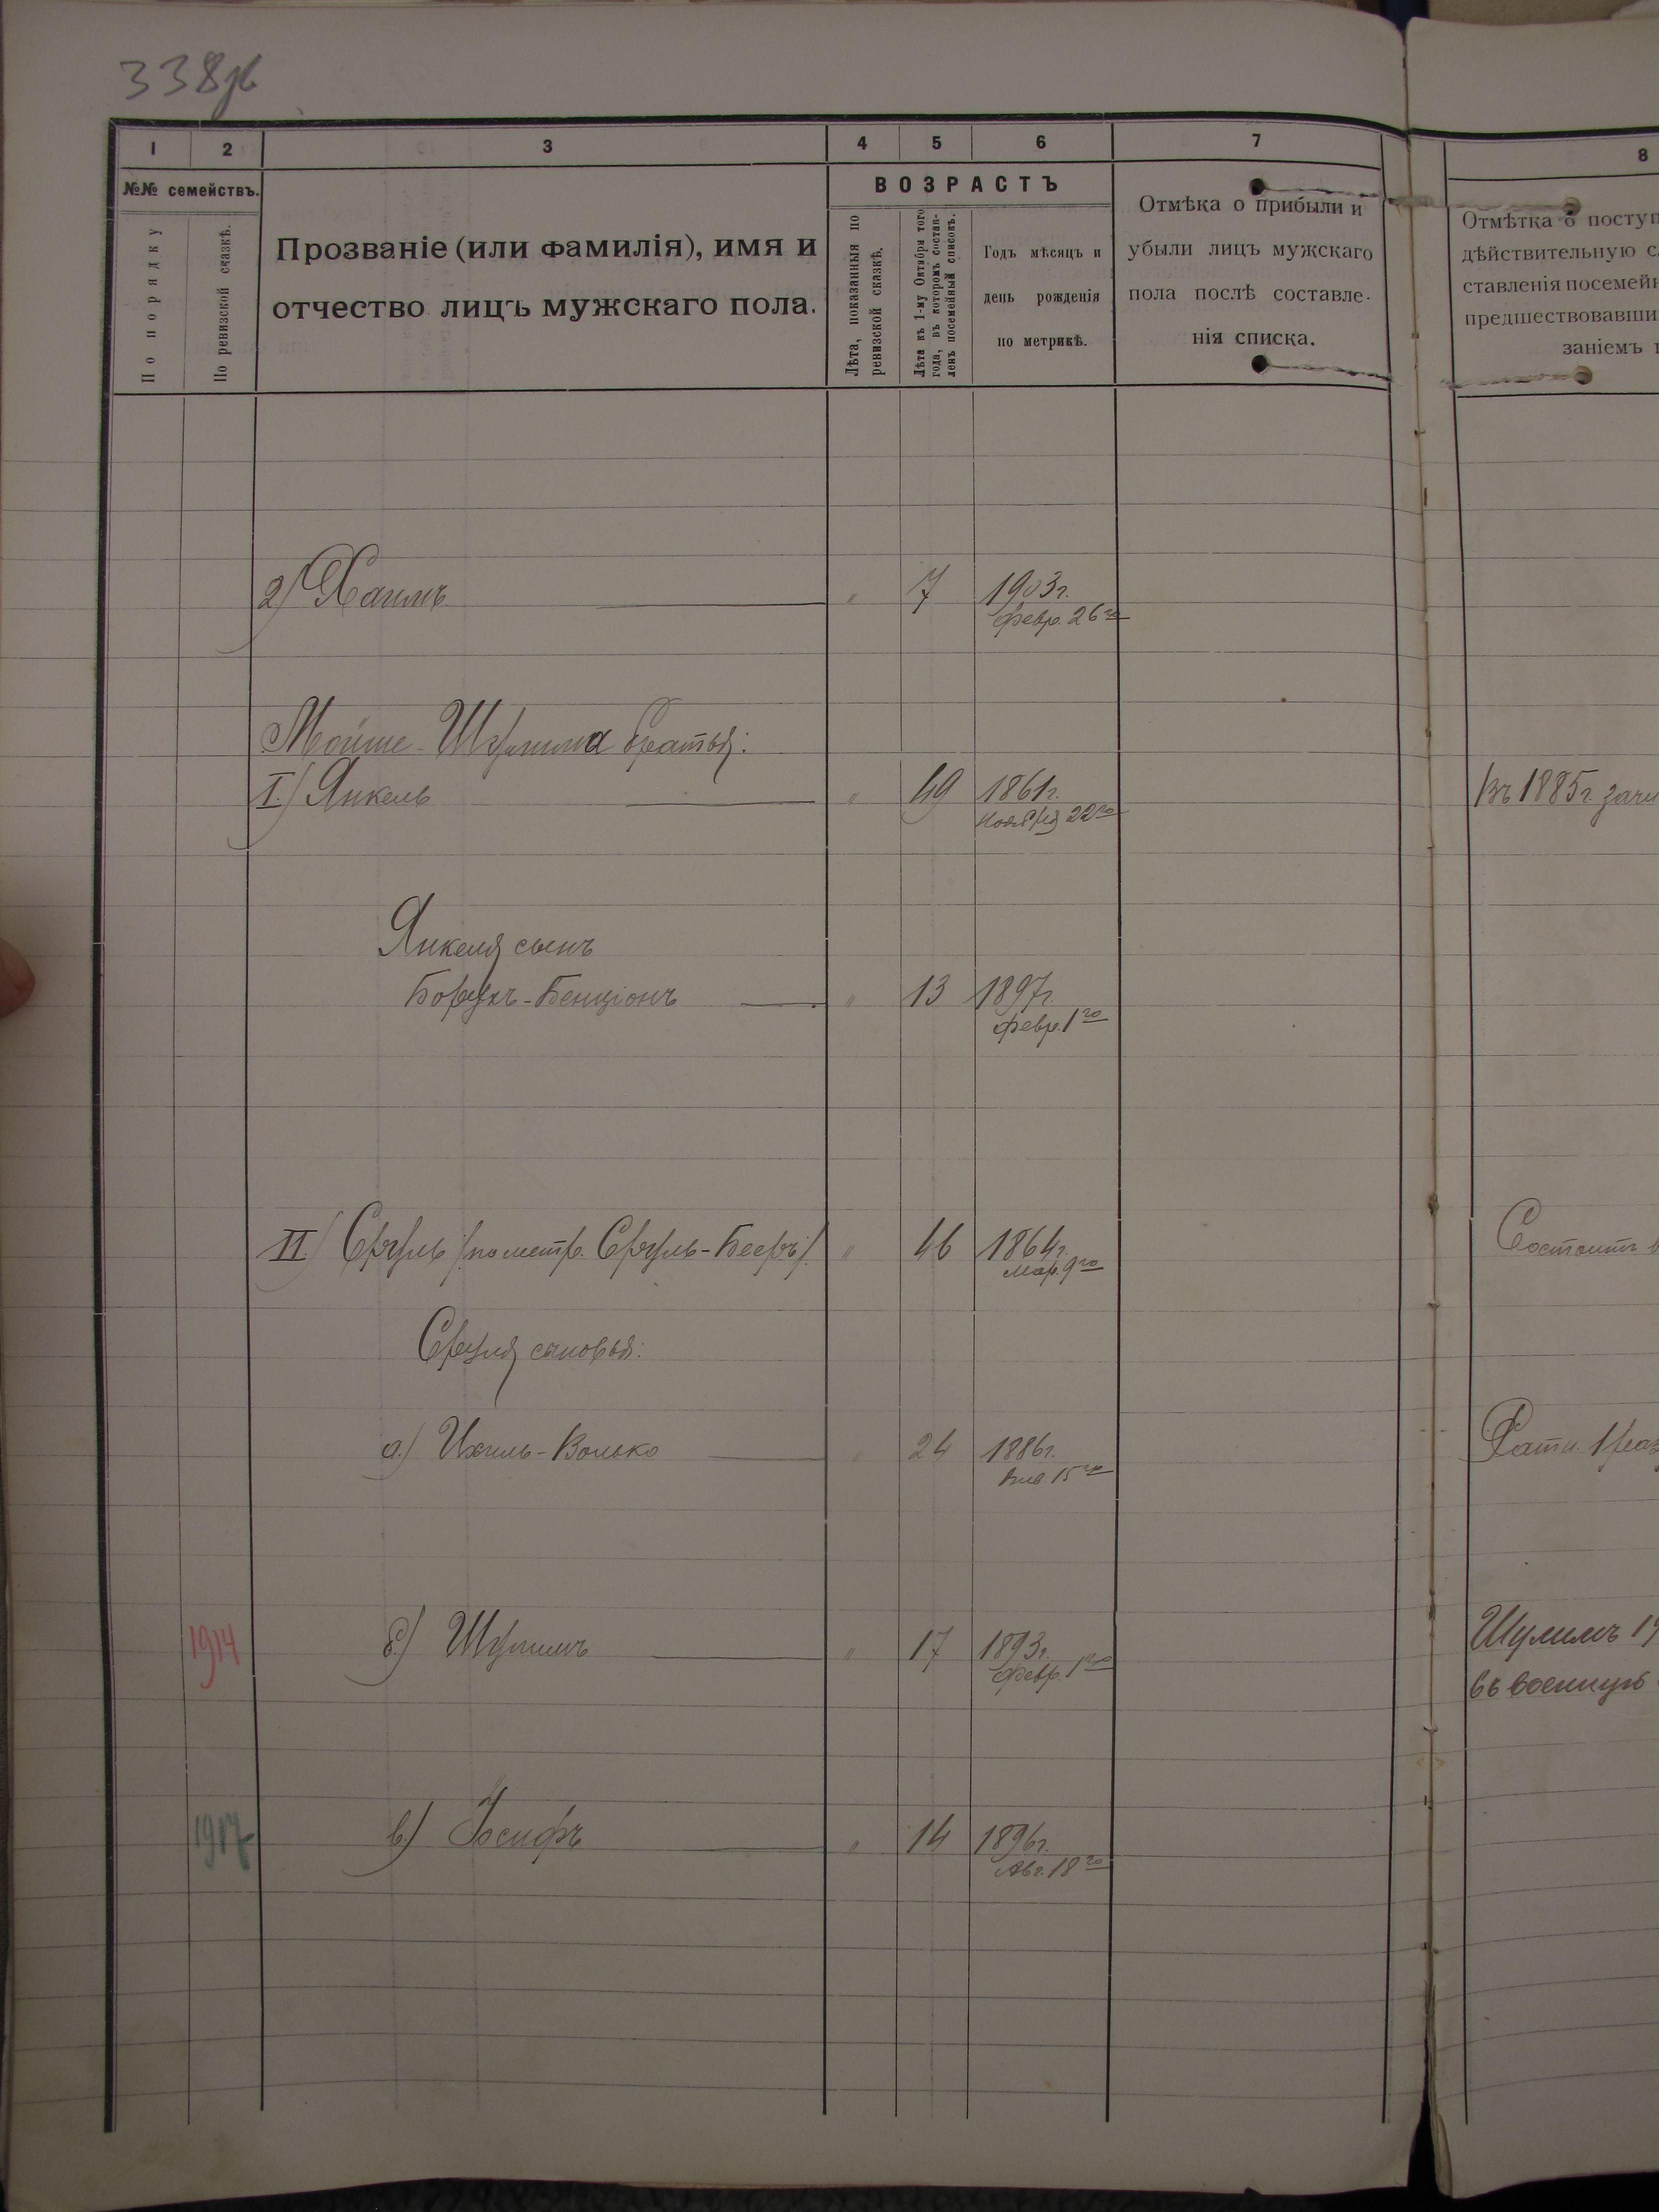 338 об
1 2 3 4 5 6 7 8
№№ семействъ.
По порядку
По ревизской сказкѣ.
Прозваніе (или фамилія), имя и
отчество лицъ мужскаго пола.
ВОЗРАСТЪ
Лѣта, показанныя по
ревизской сказкѣ.
Лѣта къ 1-му Октября того
года, въ которомъ состав-
ленъ посемейный списокъ.
Годъ мѣсяцъ и
день рожденія
по метрикѣ.
Отмѣка о прибыли и
убыли лицъ мужскаго
пола послѣ составле-
нія списка.
Отмѣтка о поступ
дѣйствительную с
ставленія посемейн
предшествовавши
заніемъ
2) Хаимъ " 7 1903г.
Февр. 26го
Мойше-Шулима братья:
I.) Янкель " 49 1861г.
Ноября 22го
Въ 1885г. зачи
Янкеля сынъ
Борухъ-Бенціонъ " 13 1897г.
Февр. 1го
II.) Сруль /по метр. Сруль-Бееръ/. " 46 1864г.
Мар. 9го
Состоитъ в
Сруля сыновья:
а.) Ихиль-Волько " 24 1886г.
Янв. 15го
Ратн. 1 раз
1914 б.) Шулимъ " 17 1893г.
Февр. 1го
Шулимъ 19
въ военную
1917 в) Іосифъ " 14 1896г.
Авг. 18го